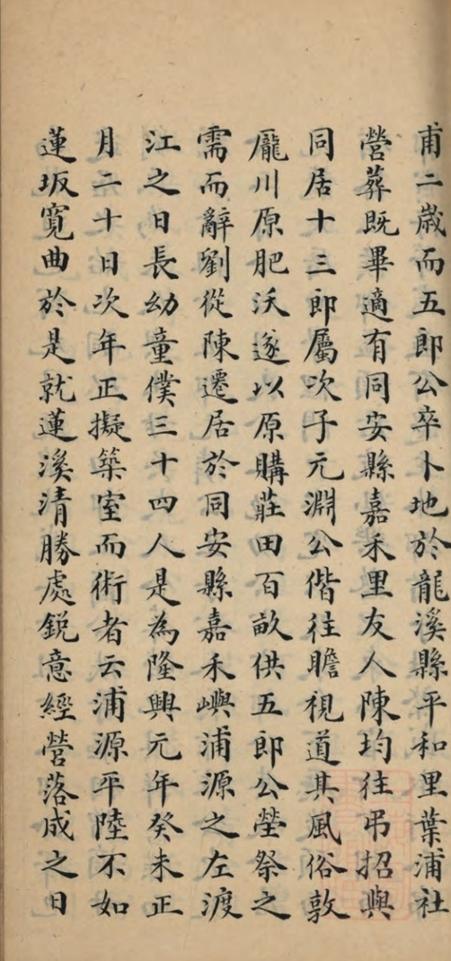 甫二歲而五郎公卒卜地於龍溪縣平和里葉浦社
營葬既畢適有同安縣嘉禾里友人陳均往弔招與
同居十三郎屬次子元淵公偕往瞻視道其風俗敦
龐川原肥沃遂以原購莊田百畝供五郎公塋祭之
需而辭劉從陳遷居於同安縣嘉禾嶼浦源之左渡
江之日長幼童僕三十四人是為隆興元年癸未正
月二十日次年正擬築室而術者云浦源平陸不如
蓮坂寬曲於是就蓮溪清勝處銳意經營落成之日